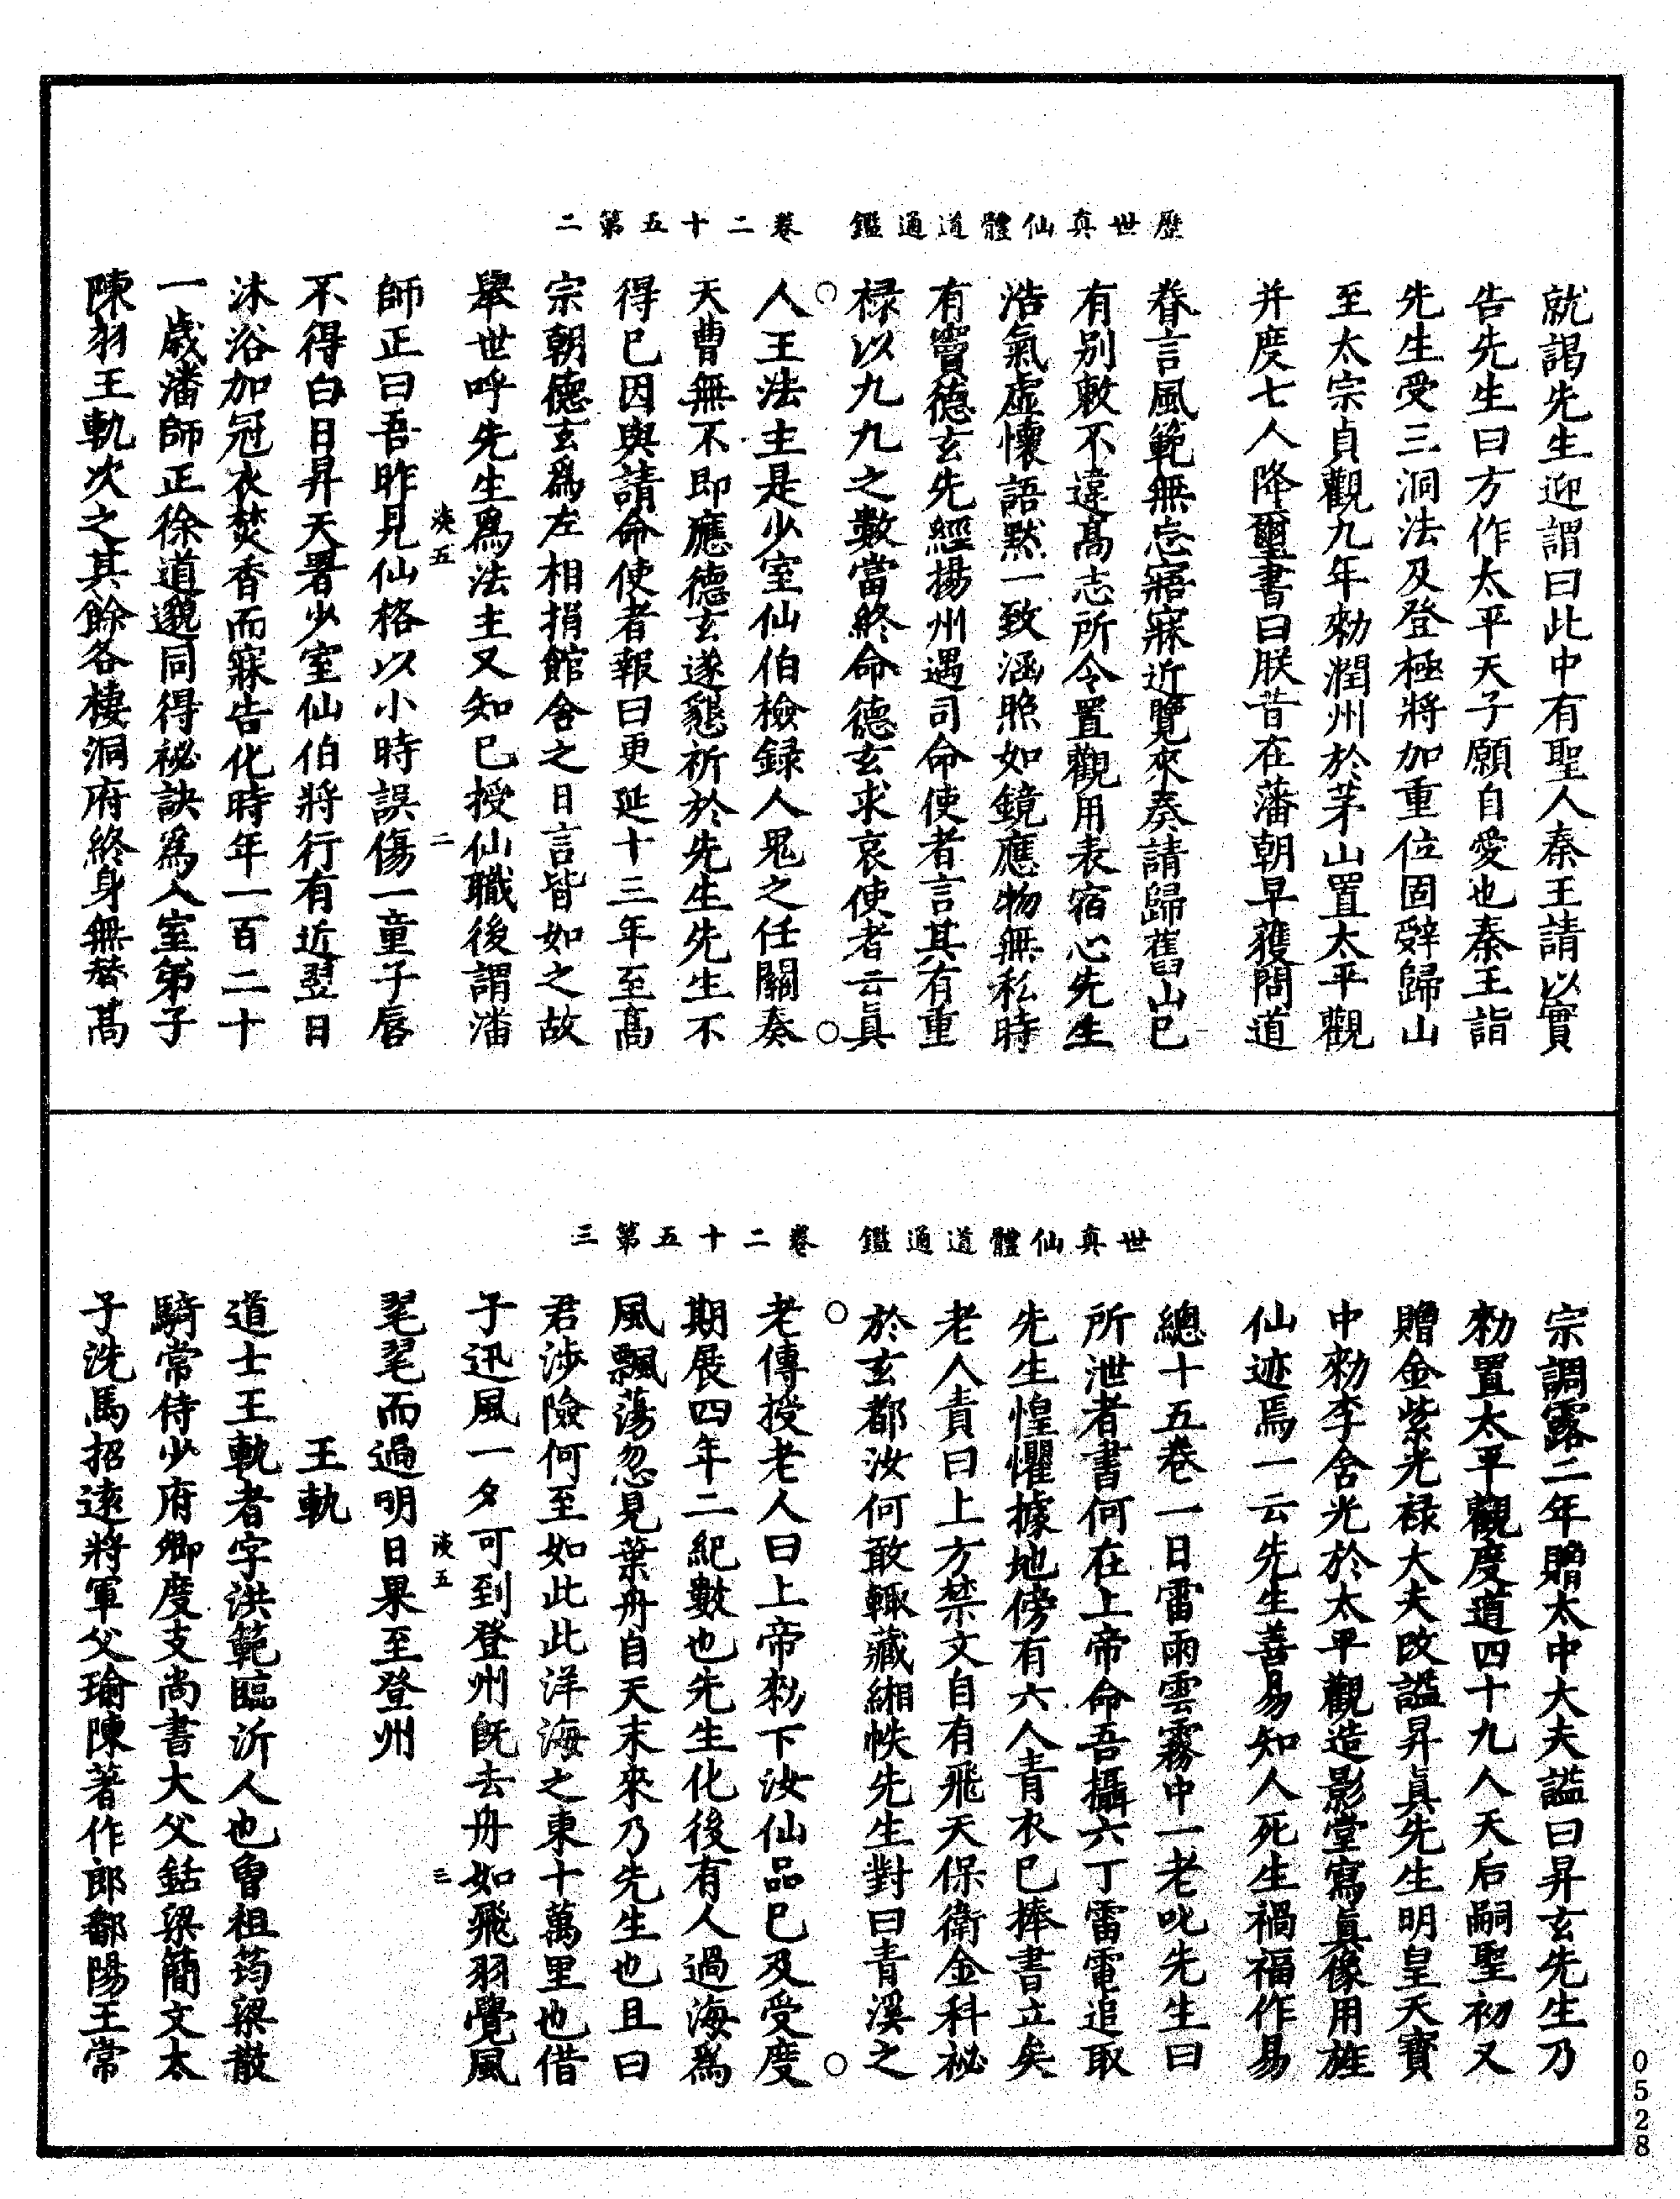 歷世真仙體道通鑑　卷二十五第二
就謁先生迎謂曰此中有聖人秦王請以實
告先生曰方作太平天子願自愛也秦王詣
先生受三洞法及登極將加重位固辭歸山
至太宗貞觀九年勑潤州於茅山置太平觀
并度七人降璽書曰朕昔在藩朝早獲問道
眷言風範無忘寤寐近覽來奏請歸舊山已
有別敕不違高志所令置觀用表宿心先生
浩氣虛懷語默一致涵照如鏡應物無私時
有竇德玄先經揚州遇司命使者言其有重
祿以九九之數當終命德玄求哀使者云真
人王法主是少室仙伯檢録人鬼之任關奏
天曹無不即應德玄遂懇祈於先生先生不
得已因與請命使者報曰更延十三年至高
宗朝德玄爲左相捐館舍之日言皆如之故
舉世呼先生爲法主又知已授仙職後謂潘
淡五　二
師正曰吾昨見仙格以小時誤傷一童子唇
不得白日昇天署少室仙伯將行有近翌日
沐浴加冠衣焚香而寐告化時年一百二十
一歲潘師正徐道邈同得祕訣爲入室弟子
陳羽王軌次之其餘各棲洞府終身無替高
世真仙體道通鑑　卷二十五第三
宗調露二年贈太中大夫謚曰昇玄先生乃
勑置太平觀度道四十九人天后嗣聖初又
贈金紫光祿大夫改謚昇真先生明皇天寶
中勑李含光於太平觀造影堂寫真像用旌
仙迹焉一云先生善易知人死生禍福作易
總十五卷一日雷雨雲霧中一老叱先生曰
所泄者書何在上帝命吾攝六丁雷電追取
先生惶懼據地傍有六人青衣已捧書立矣
老人責曰上方禁文自有飛天保衛金科祕
於玄都汝何敢輒藏緗帙先生對曰青溪之
老傳授老人曰上帝勑下汝仙品已及受度
期展四年二紀數也先生化後有人過海爲
風飄蕩忽見葉舟自天末來乃先生也且曰
君涉險何至如此此洋海之東十萬里也借
子迅風一夕可到登州既去舟如飛羽覺風
淡五　三
毣毣而過明日果至登州
王軌
道士王軌者字洪範臨沂人也曾祖筠梁散
騎常侍少府卿度支尚書大父銛梁簡文太
子洗馬招遠將軍父瑜陳著作郎鄱陽王常
0528